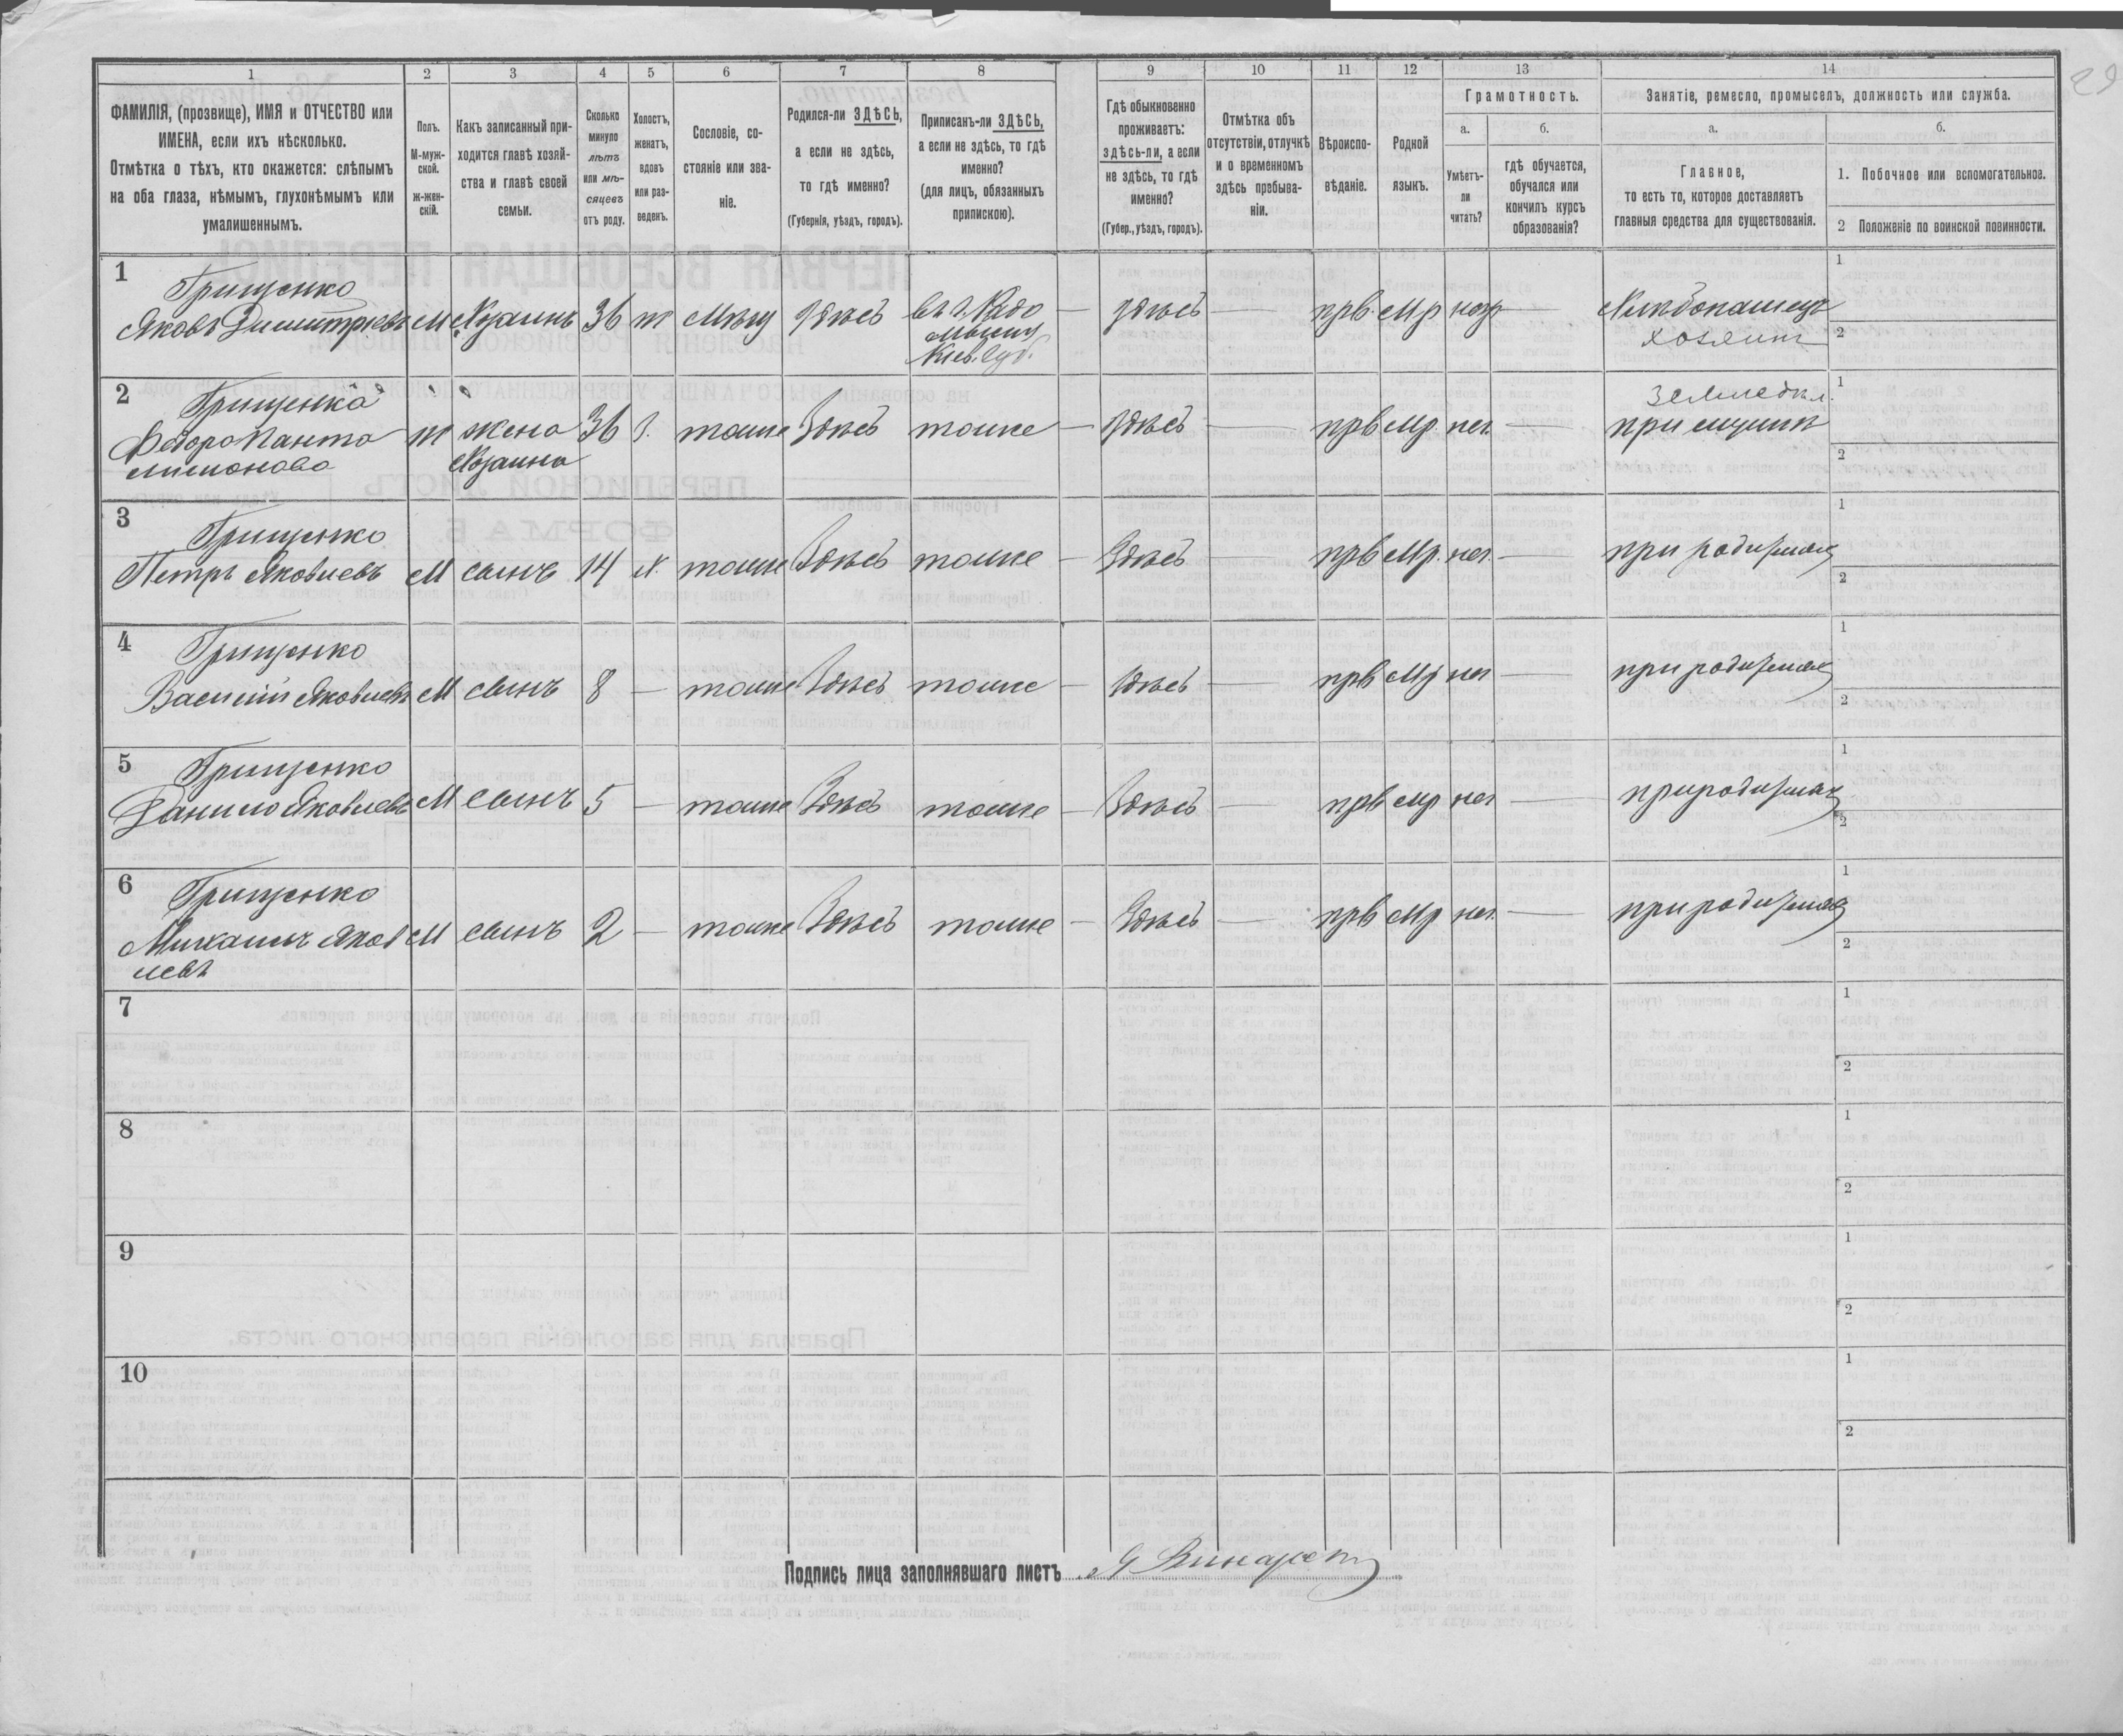 1 2 3 4 5 6 7 8 9 10 11 12 13 14
ФАМИЛІЯ, (прозвище), ИМЯ и ОТЧЕСТВО или
ИМЕНА, если ихъ нѣсколько.
Отмѣтка о тѣхъ, кто окажется: слѣпымъ
на оба глаза, нѣмымъ, глухонѣмымъ или
умалишеннымъ.
Полъ.
М-муж-
ской.
ж-жен-
скій.
Какъ записанный при-
ходится главѣ хозяй-
ства и главѣ своей
семьи.
Сколько
минуло
лѣтъ
или мѣ-
сяцевъ
отъ роду.
Холостъ,
женатъ,
вдовъ
или раз-
веденъ.
Сословіе, со-
стояніе или зва-
ніе.
Родился-ли ЗДѢСЬ,
а если не здѣсь,
то гдѣ именно?
(Губернія, уѣздъ, городъ).
Приписанъ-ли ЗДѢСЬ,
а если не здѣсь, то гдѣ
именно?
(для лицъ, обязанныхъ
припискою).
Гдѣ обыкновенно
проживаетъ:
здѣсь-ли, а если
не здѣсь, то гдѣ
именно?
(Губер., уѣздъ, городъ).
Отмѣтка объ
отсутствіи, отлучкѣ
и о временномъ
здѣсь пребыва-
ніи.
Вѣроиспо-
вѣданіе.
Родной
языкъ.
Грамотность.
а.
Умѣетъ-
ли
читать?
б.
гдѣ обучается,
обучался или
кончилъ курсъ
образованія?
Занятіе, ремесло, промыселъ, должность или служба.
а.
Главное,
то есть то, которое доставляетъ
главныя средства для существованія.
б.
1. Побочное или вспомогательное.
2 Положеніе по воинской повинности.
29
1 Грищенко
Яковъ Димитріевъ М Хозяинъ 36 ж Мѣщ здѣсь въ г. Радо — здѣсь — прв. Мр негр — Хлѣбопашецъ 1
мыслу
Кіев. губ.
хозяинъ 2
2 Грищенко
Федора Панто ж жена 36 З. тоже Здѣсь тоже — здѣсь — прв Мр. нет. — при мужѣ 1
лимонова Хозяина 2
Земледѣл.
3 Грищенко
Петръ Яковлевъ М сынъ 14 х. тоже Здѣсь тоже — Здѣсь — прв Мр. нет. — при родителяхъ 1
2
4 Грищенко
Василій Яковлевъ М сынъ 8 — тоже Здѣсь тоже — Здѣсь — прв Мр нет — при родителяхъ 1
2
5 Грищенко
Данило Яковлевъ М сынъ 5 — тоже Здѣсь тоже — Здѣсь — прв мр нет — при родителяхъ 1
2
6 Грищенко
Михаилъ Яков М сынъ 2 — тоже Здѣсь тоже — Здѣсь — прв Мр нет. — при родителяхъ 1
левъ 2
7 1
2
8 1
2
9 1
2
10 1
2
Подпись лица заполнявшаго листъ